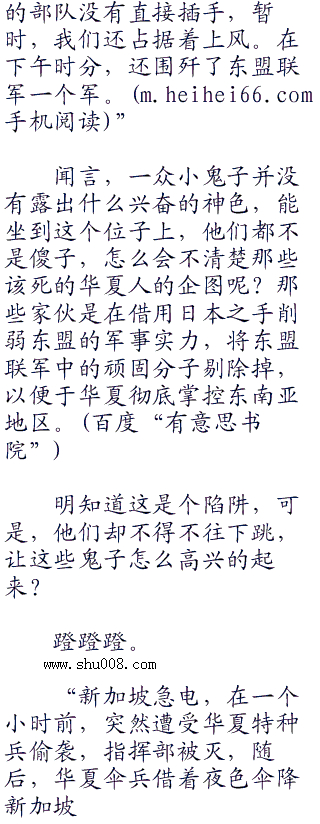 的部队没有直接插手，暂
时，我们还占据着上风。在
下午时分，还围歼了东盟联
军一个军。(m.heihei66.com
手机阅读)”
闻言，一众小鬼子并没
有露出什么兴奋的神色，能
坐到这个位子上，他们都不
是傻子，怎么会不清楚那些
该死的华夏人的企图呢？那
些家伙是在借用日本之手削
弱东盟的军事实力，将东盟
联军中的顽固分子剔除掉，
以便于华夏彻底掌控东南亚
地区。(百度“有意思书
院”)
明知道这是个陷阱，可
是，他们却不得不往下跳，
让这些鬼子怎么高兴的起
来？
蹬蹬蹬。
www.shu008.com
“新加坡急电，在一个
小时前，突然遭受华夏特种
兵偷袭，指挥部被灭，随
后，华夏伞兵借着夜色伞降
新加坡